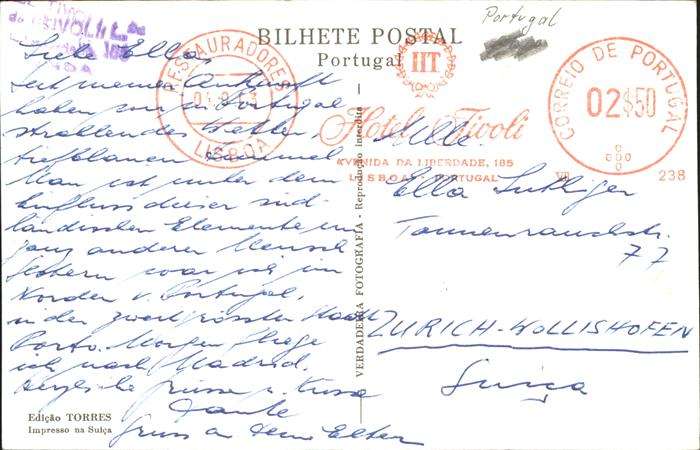 BILHETE POSTAL
Portugal
Portugal
RESTAURADORES
LISBOA
HT
Hotel Tivoli
AVENIDA DA LIBERDADE, 185
LISBOA - PORTUGAL
CORREIO DE PORTUGAL
02$50
238
Liebe Ella
Seit meiner Ankunft
haben wir in Portugal
strahlendes Wetter,
tiefblauen Himmel
Man ist unter dem
Einfluss dieser süd-
ländischen Elemente ein
ganz anderer Mensch
Gestern war ich im
Norden v. Portugal,
in der zweitgrössten Stadt
Porto. Morgen fliege
ich nach Madrid.
Herzliche Grüsse u. Küsse
Dante
Gruss an Deine Eltern
Mlle.
Ella
Tannenrauchstr.
77
ZURICH-WOLLISHOFEN
Suiça
VERDADEIRA FOTOGRAFIA - Reprodução interdita
Edição TORRES
Impresso na Suiça